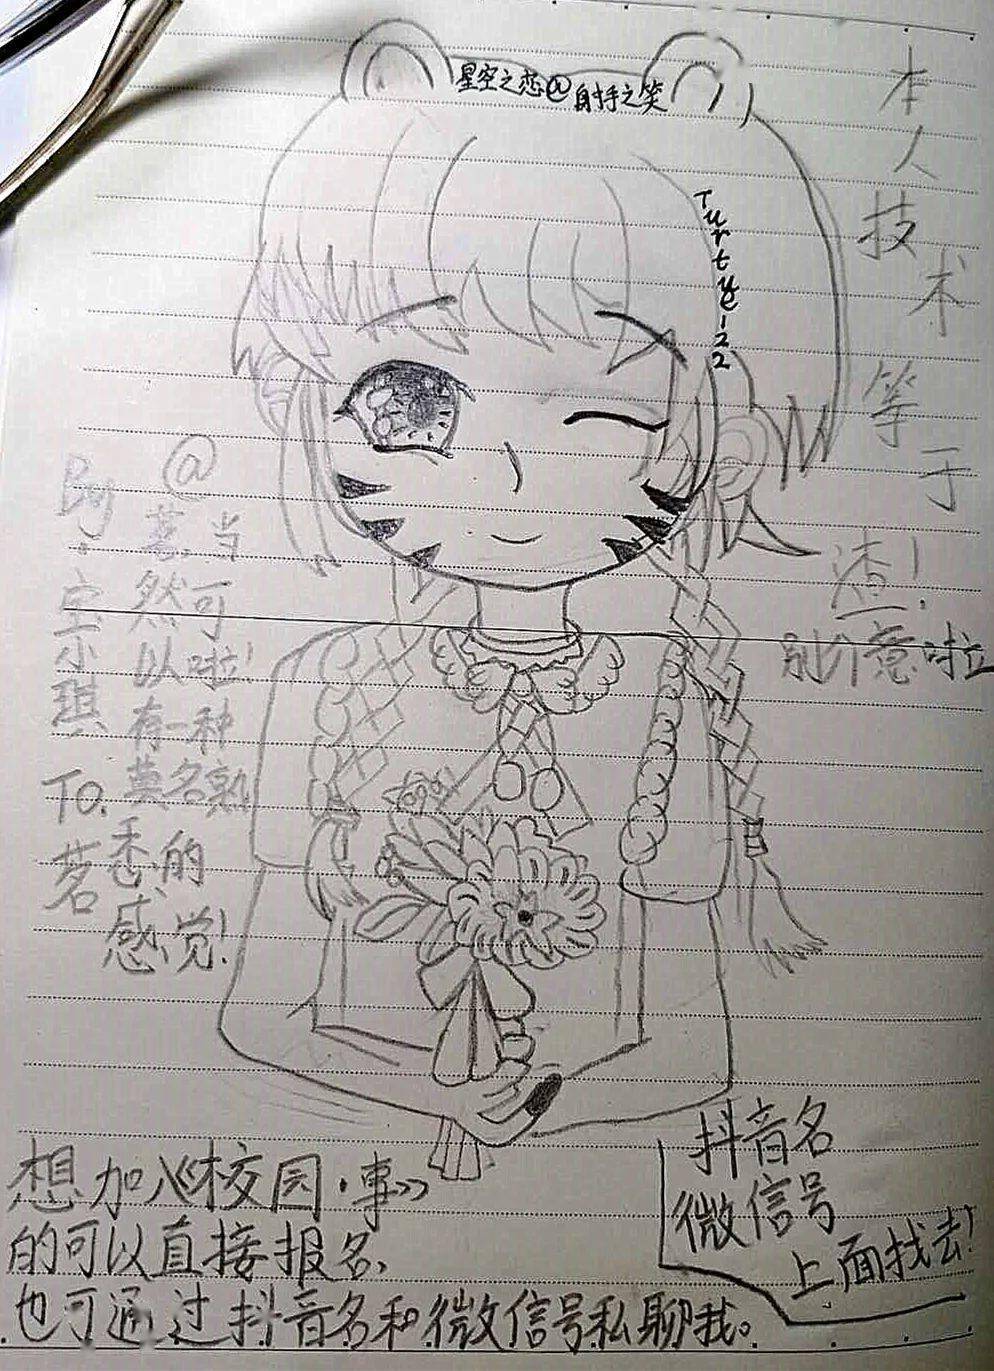 星空之恋@射手之笑
Turtue122
本人技术等于渣!
别介意啦
By:宝小琪
To.茗
@茗,当然可以啦!有一种莫名熟悉的感觉!
想加入《校园·事》
的可以直接报名,
也可通过抖音名和微信号私聊我。
抖音名
微信号
上面找去!